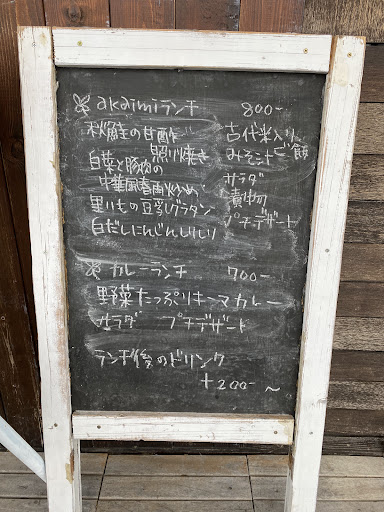 akaimiランチ 800-
秋鮭の甘酢
照り焼き
白菜と豚肉の
中華風春雨炒め
里いもの豆乳グラタン
白だしにんじんしりしり
古代米入り
ご飯
みそ汁
サラダ
漬物
プチデザート
カレーランチ 700-
野菜たっぷりキーマカレー
サラダ プチデザート
ランチ後のドリンク
+200-~